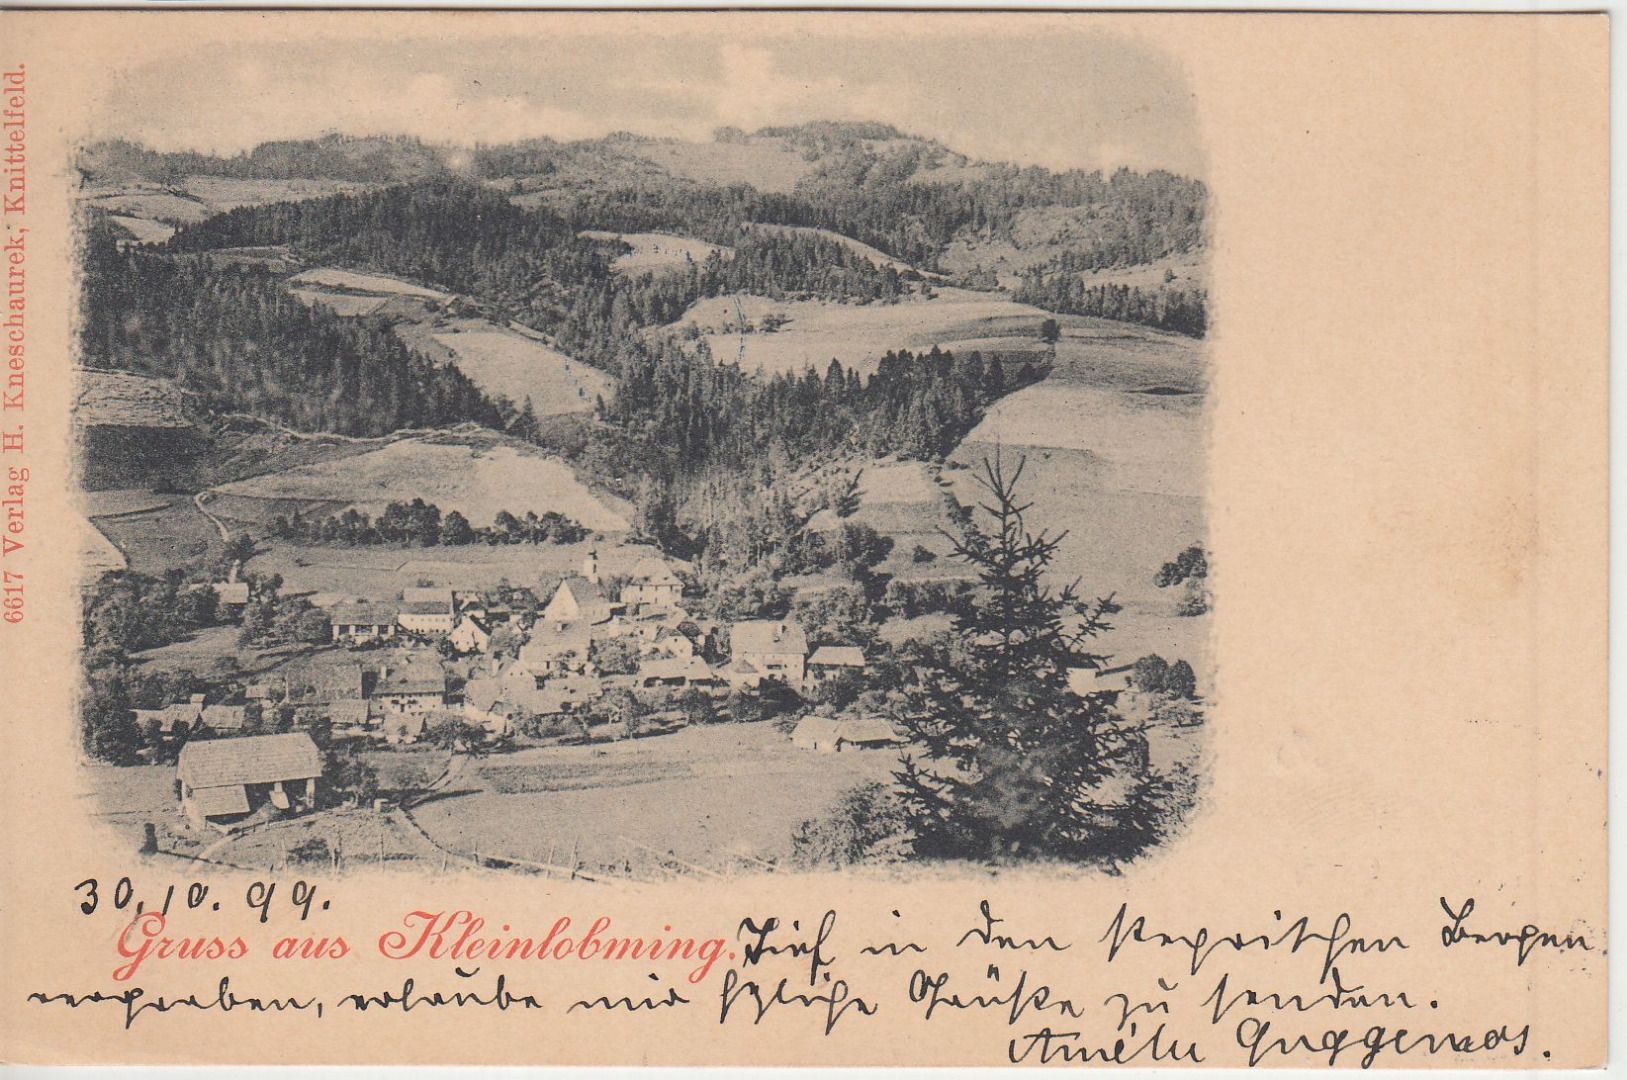 6617 Verlag H. Kneschaurek, Knittelfeld.
30.10.99.
Gruss aus Kleinlobming.
Tief in den steyrischen Bergen
vergraben, erlaube mir hzliche Grüße zu senden.
Amélie Guggemos.